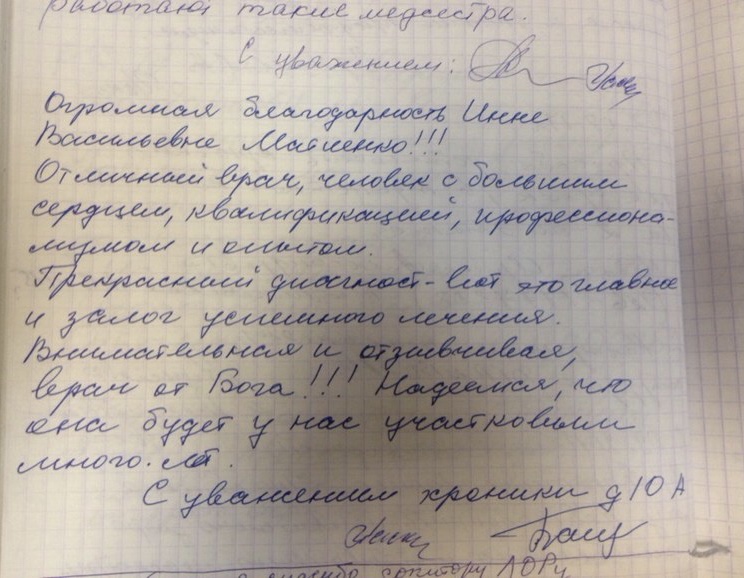 работают такие медсестра.
С уважением:
Огромная благодарность Инне
Васильевне Матиенко!!!
Отличный врач, человек с большим
сердцем, квалификацией, професcиона-
лизмом и опытом.
Прекрасный диагност - вот это главное
и залог успешного лечения.
Внимательная и отзывчивая,
врач от Бога!!! Надеемся, что
она будет у нас участковым
много лет.
С уважением хроники д 10 А
спасибо доктору ЛОРу